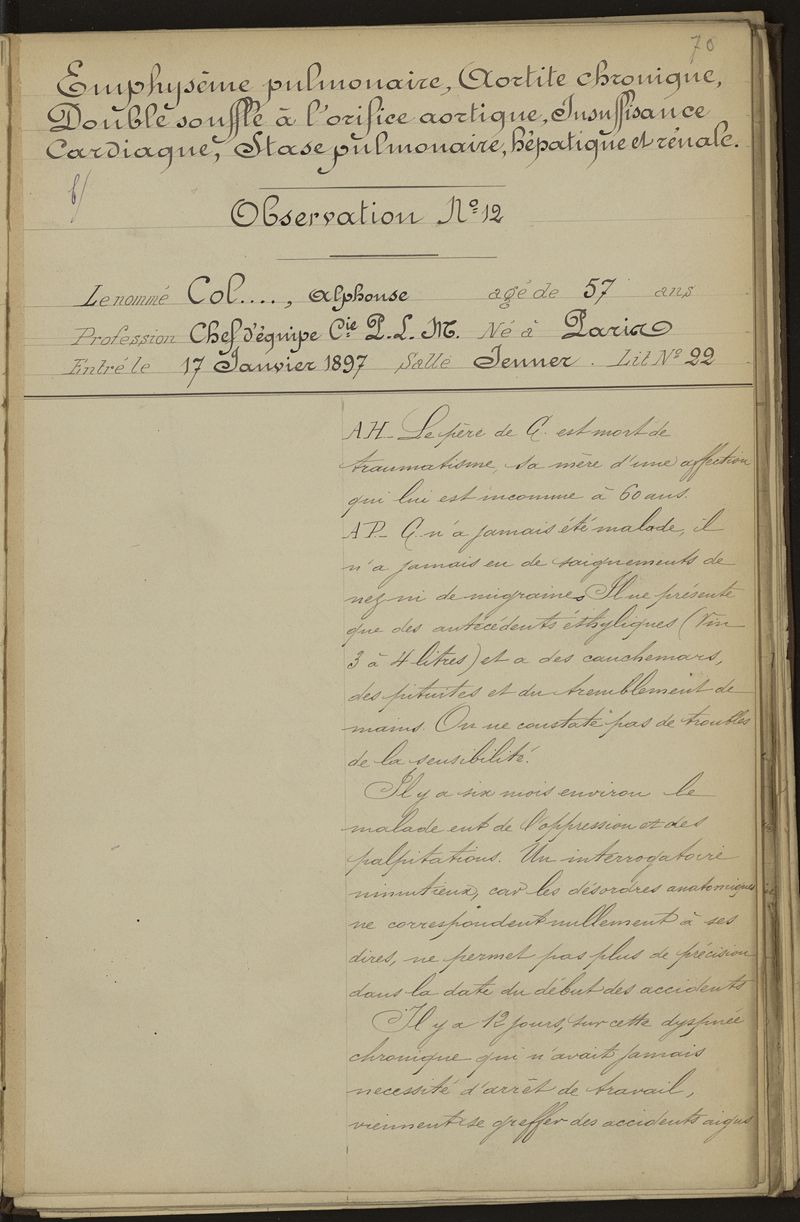 70
Emphysème pulmonaire, Aortite chronique,
Double souffle à l'orifice aortique, Insuffisance
Cardiaque, Stase pulmonaire, hépatique et rénale.
Observation Nº 12
Le nommé Col...., Alphonse agé de 57 ans
Profession Chef d'équipe Cie P. L. M. Né à Paris
Entré le 17 Janvier 1897 Salle Jenner. Lit Nº 22
AH_ Le père de C. est mort de
traumatisme, sa mère d'une affection
qui lui est inconnue à 60 ans.
AP_ C. n'a jamais été malade, il
n'a jamais eu de saignements de
nez ni de migraine. Il ne présente
que des antécédents éthyliques (Vin
3 à 4 litres) et a des cauchemars,
des pituites et du tremblement de
mains. On ne constate pas de troubles
de la sensibilité.
Il y a six mois environ le
malade eut de l'oppression et des
palpitations. Un interrogatoire
minutieux, car les désordres anatomiques
ne correspondent nullement à ses
dires, ne permet pas plus de précision
dans la date du début des accidents
Il y a 12 jours, sur cette dyspnée
chronique qui n'avait jamais
necessité d'arrêt de travail,
viennent se greffer des accidents aigus